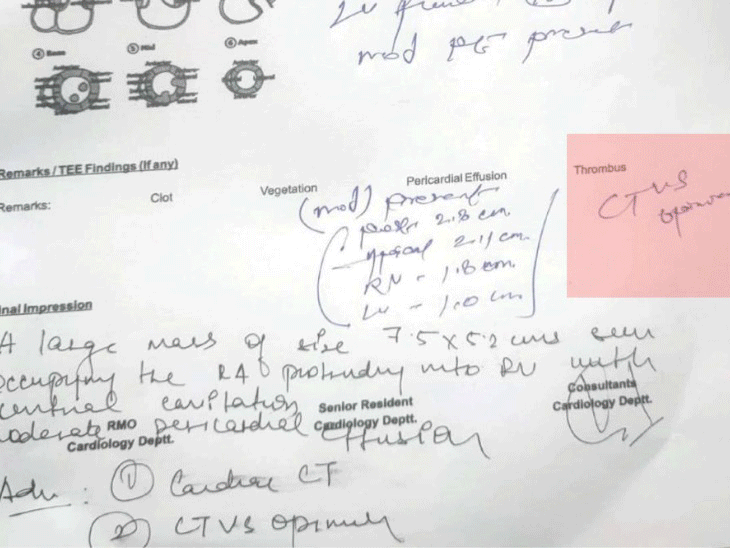 mod PE present
④ Base ⑤ Mid ⑥ Apex
Remarks / TEE Findings (If any)
Remarks: Clot Vegetation Pericardial Effusion Thrombus
(mod) present
CTVS
opinion
post 2.8 cm.
apical 2.11 cm.
RV - 1.8 cm.
LV - 1.0 cm
inal Impression
A large mass of size 7.5 x 5.2 cms seen
occupying the RA protruding into RV with
central cavitation
Senior Resident
Consultants
Cardiology Deptt.
Cardiology Deptt.
RMO
Cardiology Deptt.
moderate pericardial effusion
Adv : ① Cardiac CT
② CTVS opinion